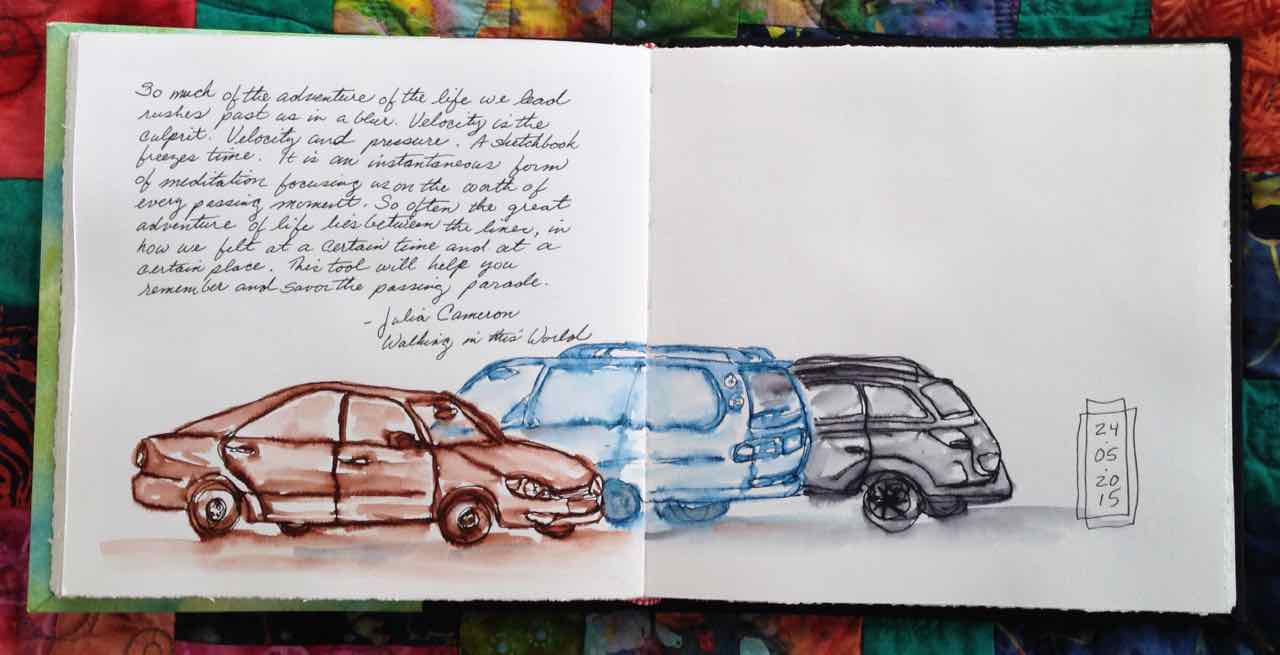 So much of the adventure of the life we lead
rushes past us in a blur. Velocity is the
culprit. Velocity and pressure. A sketchbook
freezes time. It is an instantaneous form
of meditation focusing us on the worth of
every passing moment. So often the great
adventure of life lies between the lines, in
how we felt at a certain time and at a
certain place. This tool will help you
remember and savor the passing parade.
- Julia Cameron
Walking in this World
24
.05
.20
15